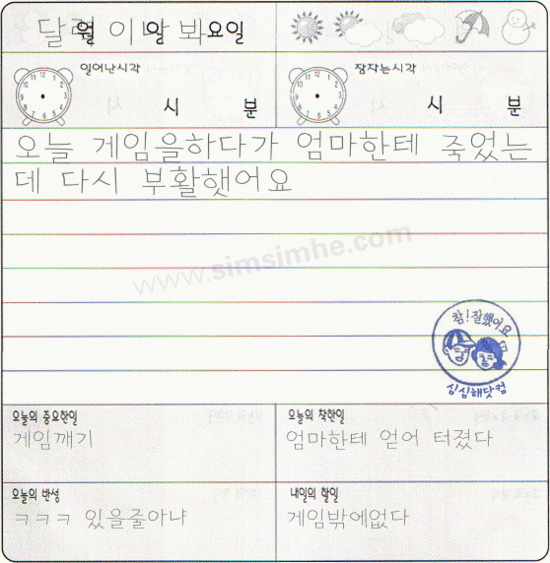 달력 이나 봐
월 일 요일
일어난시각
시 분
잠자는시각
시 분
오늘 게임을하다가 엄마한테 죽었는
데 다시 부활했어요
www.simsimhe.com
참!잘했어요
심심해닷컴
오늘의 중요한일
게임깨기
오늘의 착한일
엄마한테 얻어 터졌다
오늘의 반성
ㅋㅋㅋ 있을줄아냐
내일의 할일
게임밖에없다